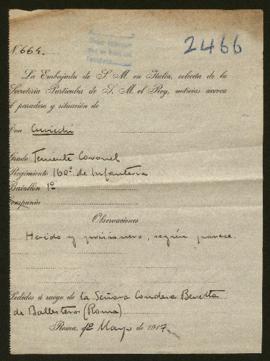 N.º 664.
2466
La Embajada de S. M. en Italia, solicita de la
Secretaría Particular de S. M. el Rey, noticias acerca
el paradero y situación de
Don
Grado Teniente Coronel
Regimiento 160º de Infantería
Batallón 1º
Compañía
Observaciones
Herido y prisionero, según parece.
Pedidos á ruego de la Señora Condesa
de Ballesteros (Roma).
Roma, 1º Mayo de 1917.